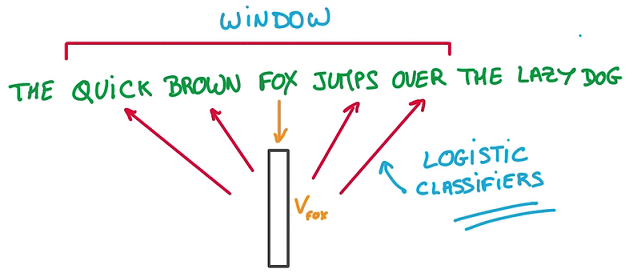 WINDOW
THE QUICK BROWN FOX JUMPS OVER THE LAZY DOG
VFOX
LOGISTIC
CLASSIFIERS